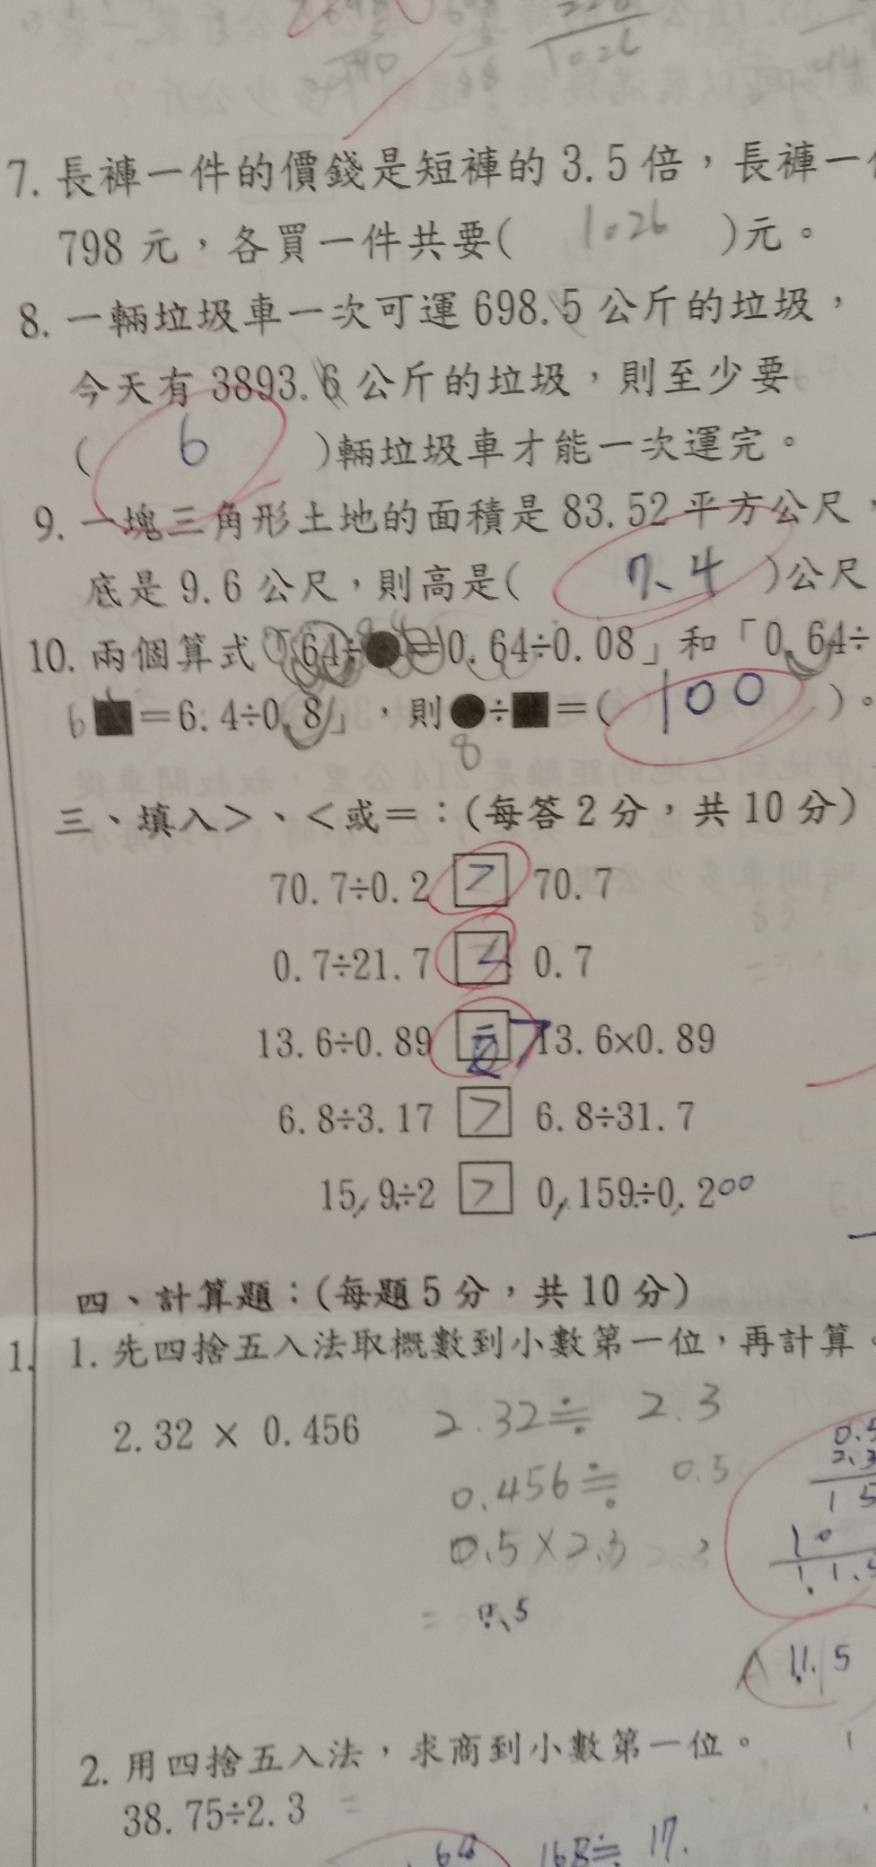 1026
7. 長褲一件的價錢是短褲的 3.5 倍，長褲一
798 元，各買一件共要( 1026 )元。
8. 一輛垃圾車一次可運 698.5 公斤的垃圾，
今天有 3893.6 公斤的垃圾，則至少要
( 6 )輛垃圾車才能一次運完。
9. 一塊三角形土地的面積是 83.52 平方公尺，
底是 9.6 公尺，則高是( 7.4 )公尺
10. 兩個算式「64÷●=0.64÷0.08」和「0.64÷
■=6.4÷0.8」，則●÷■=( 100 )。
8
三、填入＞、＜或＝：(每答 2 分，共 10 分)
70.7÷0.2 > 70.7
0.7÷21.7 < 0.7
13.6÷0.89 > 13.6×0.89
6.8÷3.17 > 6.8÷31.7
15.9÷2 > 0.159÷0.200
四、計算題：(每題 5 分，共 10 分)
1. 1. 先四捨五入法取概數到小數第一位，再計算。
2.32 × 0.456 2.32≒ 2.3
0.456≒ 0.5
0.5×2.3
2.3
15
10
A 11.5
2. 用四捨五入法，求商到小數第一位。
38.75÷2.3 =
168≒ 17.